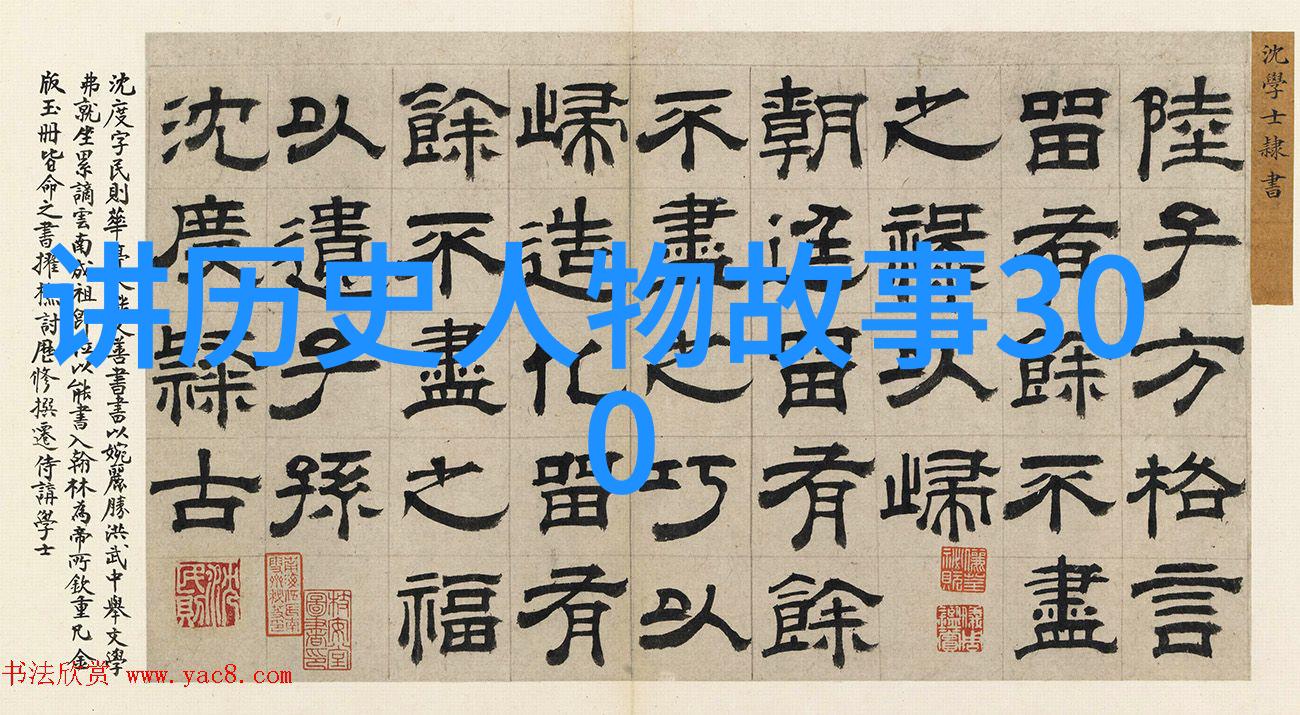 讲历史人物故事30
0
沈學士隸書
陸子方格言
留有餘不盡
之祿以歸
朝廷留有餘
不盡之巧以
歸造化留有
餘不盡之福
以遺子孫
沈度隸古
沈民則
沈度字民則華亭人能文善書書以婉麗勝洪武中舉文學
弗就坐累謫雲南成祖即位以能書入翰林為帝所欽重凡金
版玉冊皆命之書擢檢討歷修撰遷侍講學士
书法欣赏 www.yac8.com